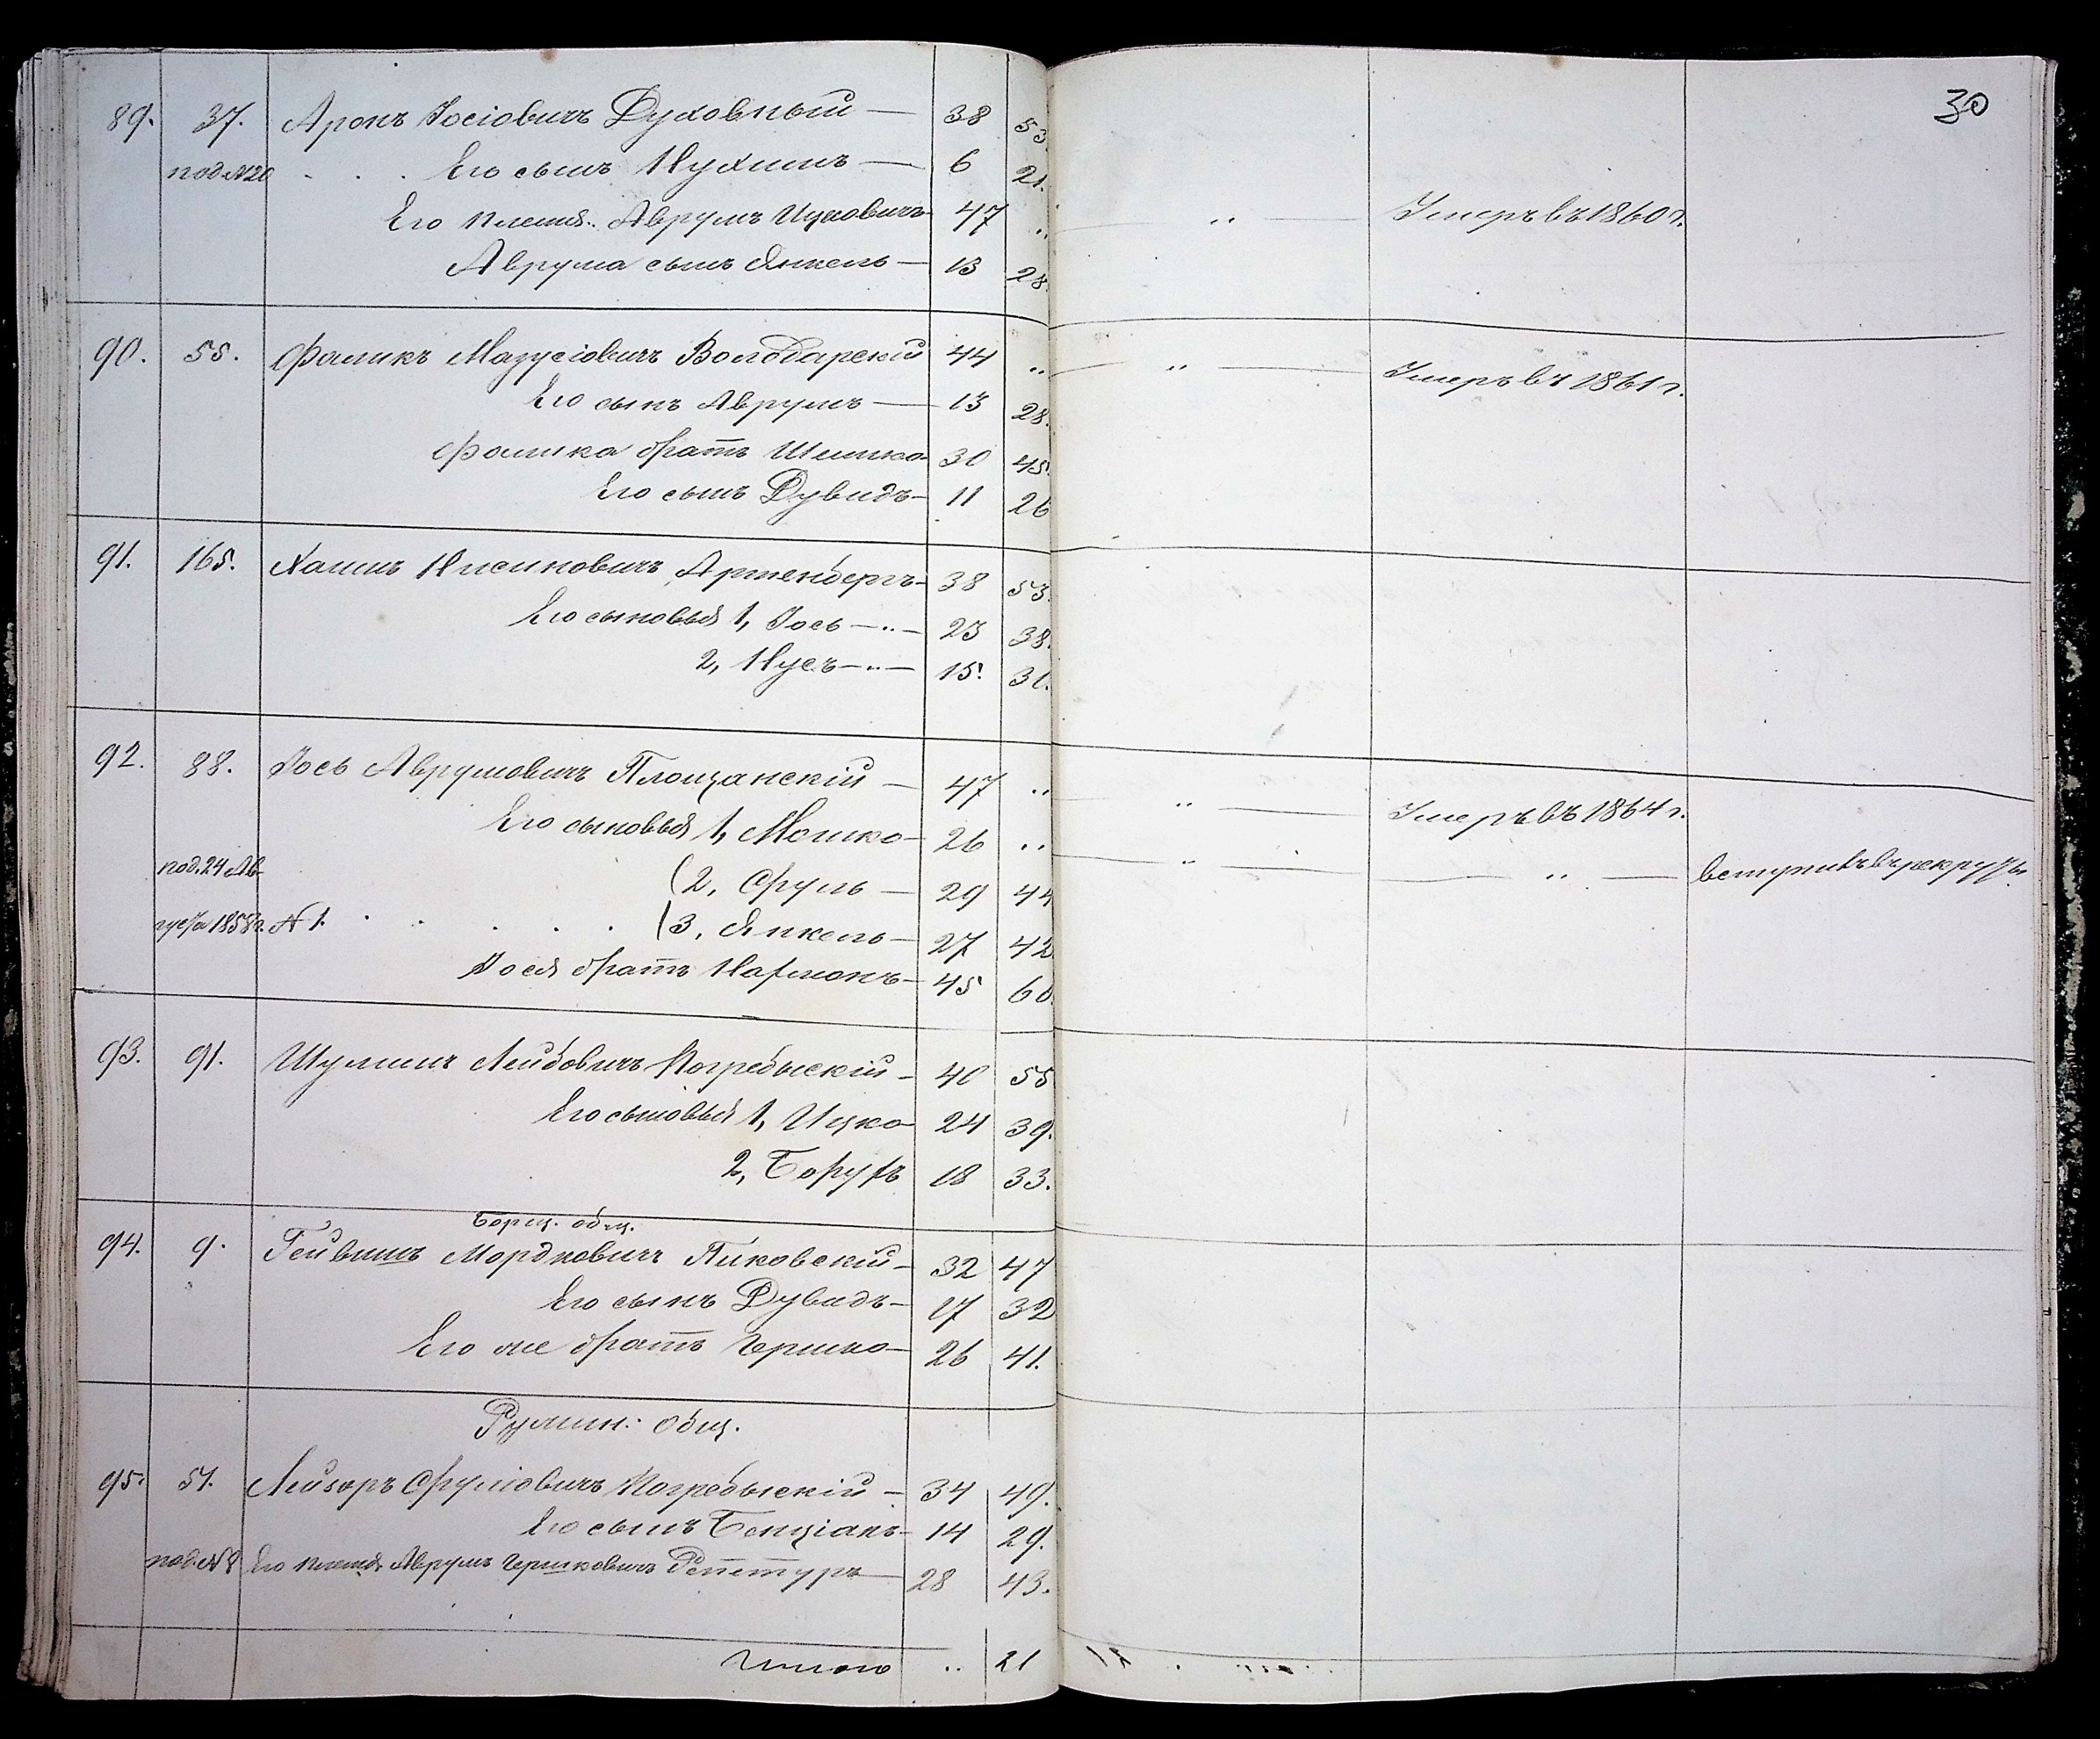 30
89. 37. Аронъ Іосіовичъ Духовный — 38 53.
под №20 . . . Его сынъ Нухимъ — 6 21.
Его племя.. Аврумъ Ицковичъ 47 .. .. — Умеръ въ 1860 г.
Аврума сынъ Янкель — 13 28.
90. 55. Фаликъ Мазусіовичъ Володарскій 44 .. .. — Умеръ въ 1861 г.
Его сынъ Аврумъ — 13 28.
Фалика братъ Шлиика 30 45.
Его сынъ Дувидъ — 11 26
91. 165. Хаимъ Нисиновичъ Артенбергъ — 38 53.
Его сыновья 1, Іось — .. — 23 38.
2, Нусъ — .. — 15. 30.
92. 88. Іось Аврумовичъ Площанскій — 47 .. .. — Умеръ въ 1864 г.
Его сыновья 1, Мошко — 26 .. .. — — .. — вступилъ въ рекруты
под. 24 Ав-
(2, Сруль — 29 44
густа 1858 г. №1. . . . . . (3, Янкель — 27 42
Іося братъ Нафмонъ — 45 60.
93. 91. Шулимъ Лейбовичъ Погребыскій — 40 55
Его сыновья 1, Ицко 24 39.
2, Борухъ 18 33.
Борщ. общ.
94. 9. Гейвишъ Мордковичъ Пиковскій — 32 47
Его сынъ Дувидъ — 17 32
Его же братъ Гершко — 26 41.
Ружин: Общ.
95. 51. Лейзоръ Сруліовичъ Погребыскій — 34 49.
Его сынъ Бенціанъ — 14 29.
под №8 Его племя. Аврумъ Гершковичъ Репетуръ — 28 43.
Итого .. 21